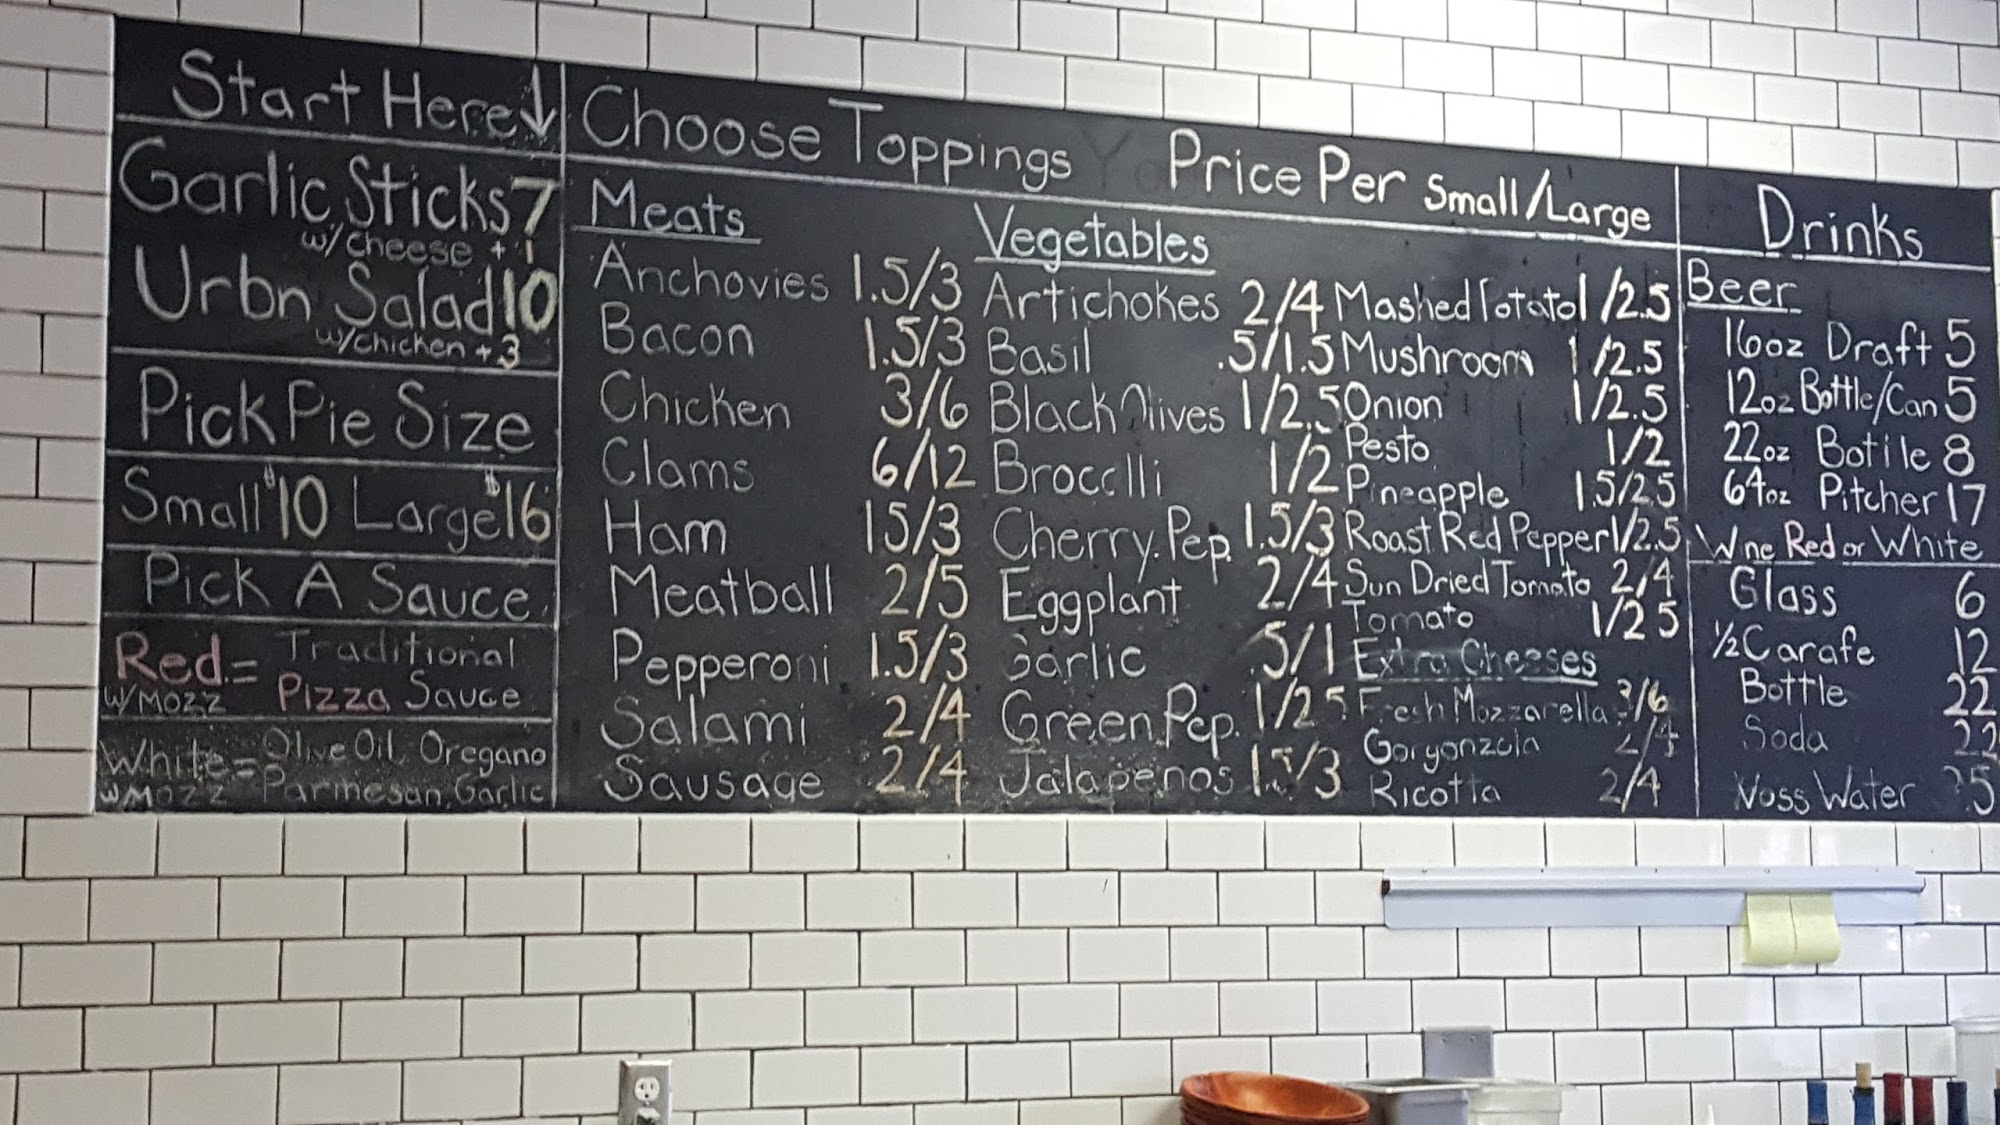 Start Here↓
Garlic Sticks 7
w/cheese + 1
Urbn Salad 10
w/chicken + 3
Pick Pie Size
Small $10 Large $16
Pick A Sauce
Red = Traditional
w/Mozz Pizza Sauce
White = Olive Oil, Oregano
w/Mozz Parmesan, Garlic
Choose Toppings Price Per Small/Large
Meats
Anchovies 1.5/3
Bacon 1.5/3
Chicken 3/6
Clams 6/12
Ham 15/3
Meatball 2/5
Pepperoni 1.5/3
Salami 2/4
Sausage 2/4
Vegetables
Artichokes 2/4
Basil .5/1.5
Black Olives 1/2.5
Brocclli 1/2
Cherry. Pep. 1.5/3
Eggplant 2/4
Garlic .5/1
Green Pep. 1/25
Jalapenos 1.5/3
Mashed Potato 1/2.5
Mushroom 1/2.5
Onion 1/2.5
Pesto 1/2
Pineapple 1.5/2.5
Roast Red Pepper 1/2.5
Sun Dried Tomato 2/4
Tomato 1/25
Extra Cheeses
Fresh Mozzarella 3/6
Gorgonzola 2/4
Ricotta 2/4
Drinks
Beer
16oz Draft 5
12oz Bottle/Can 5
22oz Bottle 8
64oz Pitcher 17
Wne Red or White
Glass 6
½ Carafe 12
Bottle 22
Soda
Voss Water